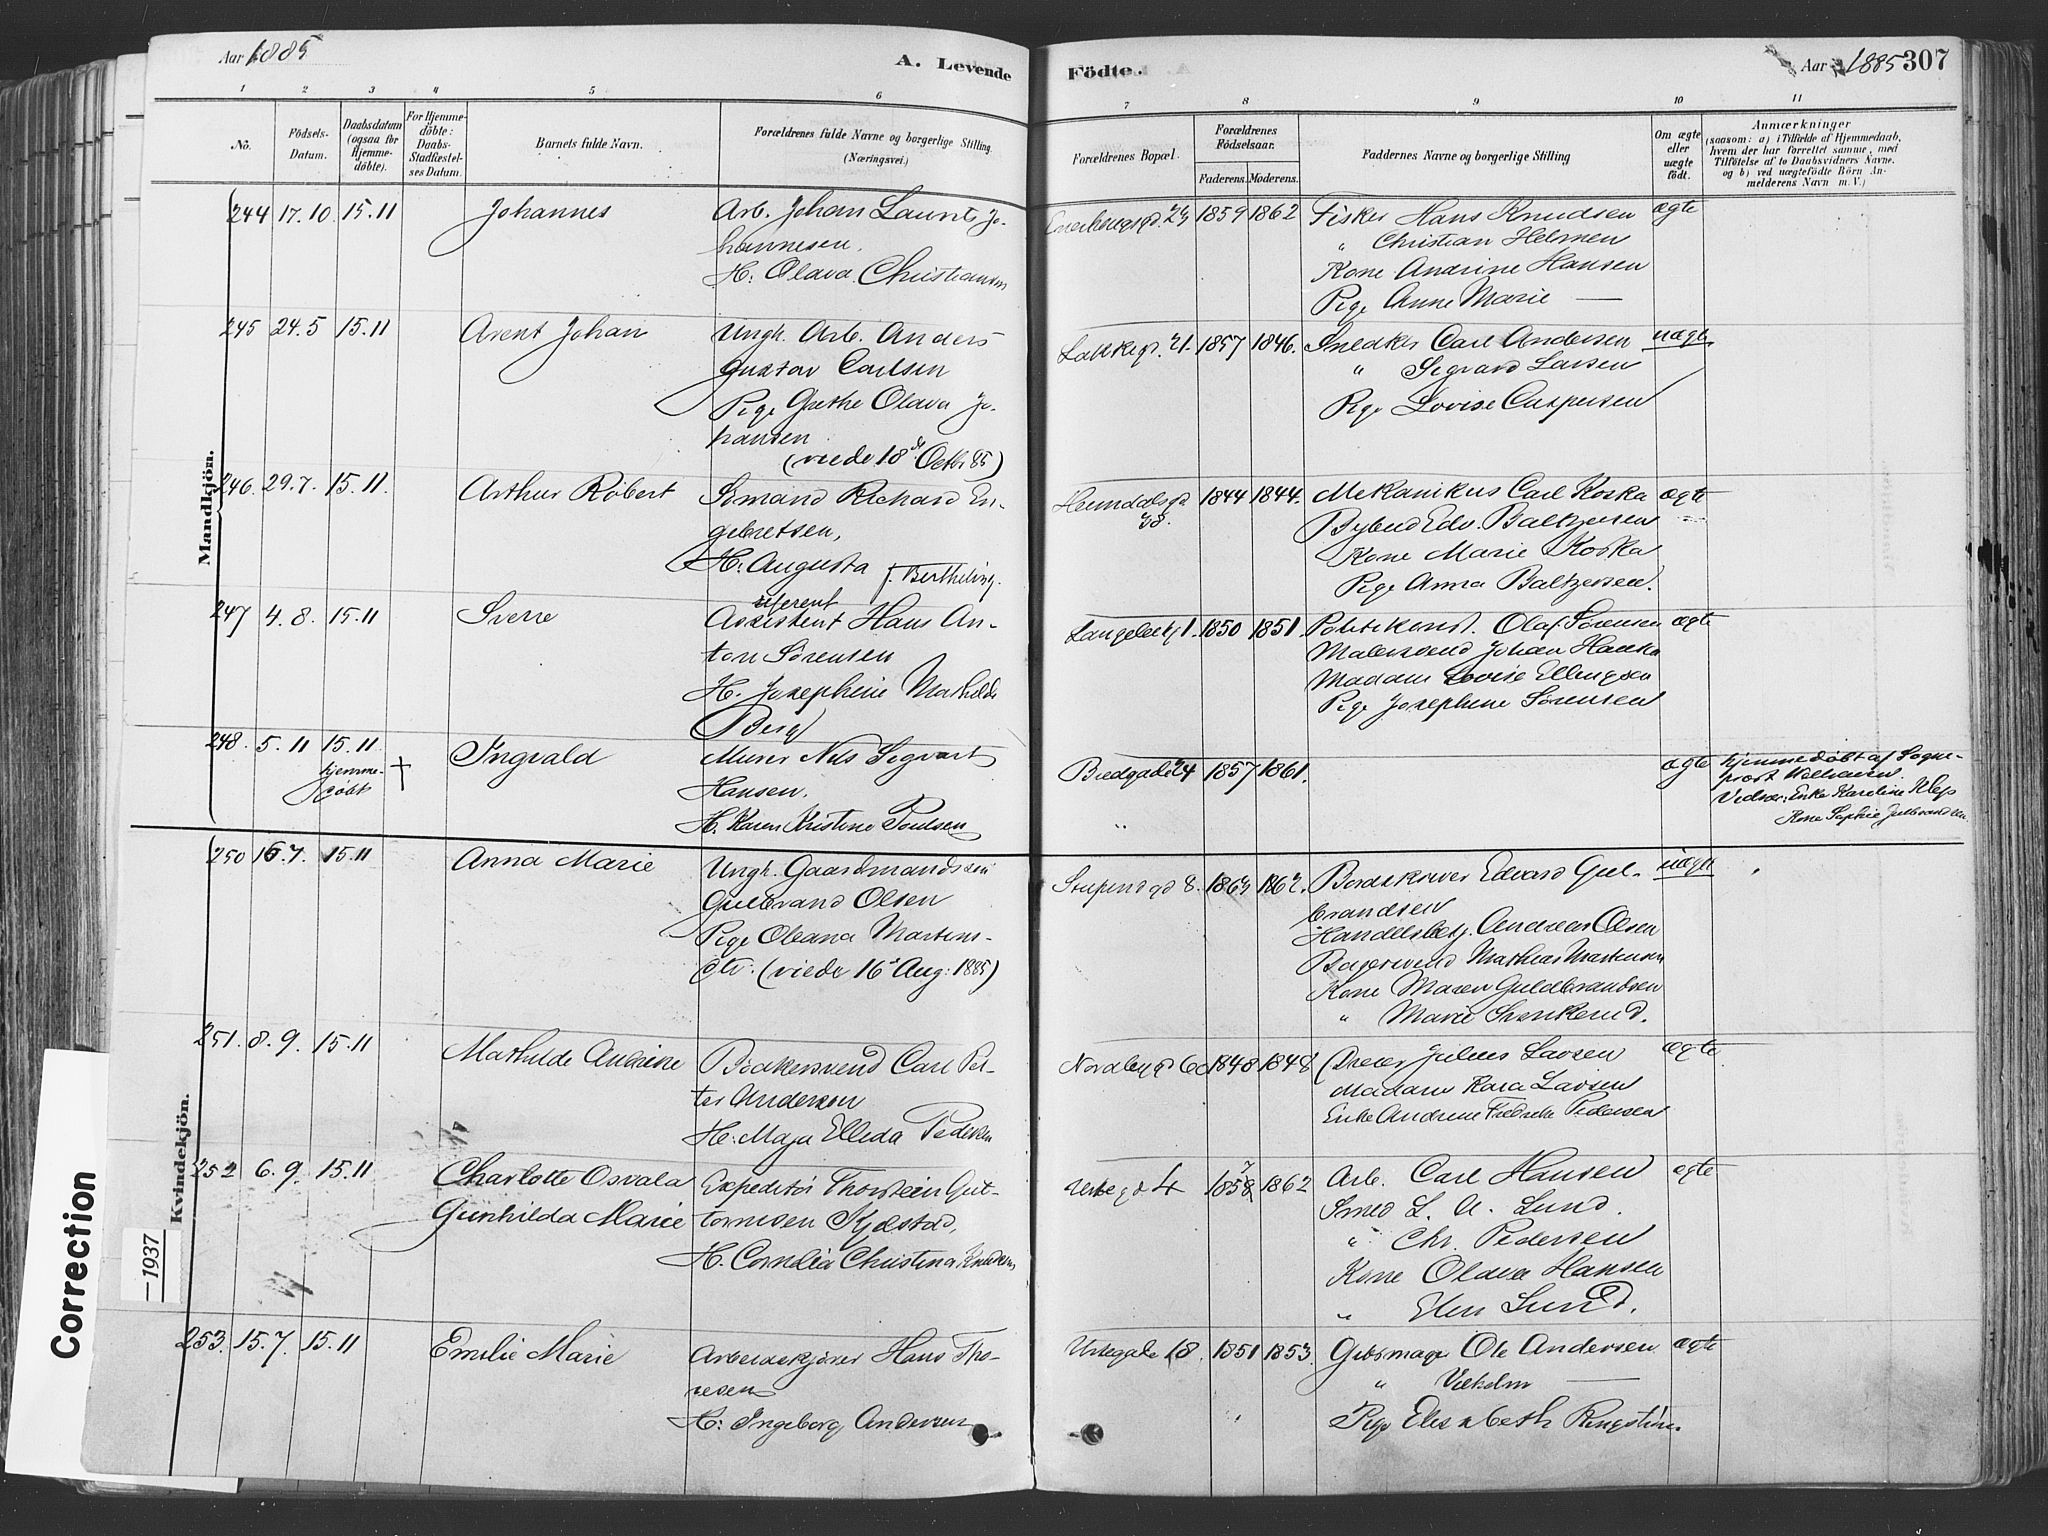 Aar 1885
A. Levende
Födte.
Aar 1885 307
1 2 3 4 5 6 7 8 9 10 11
No.
Födsels-
Datum.
Daabsdatum
(ogsaa for
Hjemme-
döbte).
For Hjemme-
döbte:
Daabs-
Stadfæstel-
ses Datum.
Barnets fulde Navn.
Forældrenes fulde Navne og borgerlige Stilling
(Næringsvei.)
Forældrenes Bopæl.
Forældrenes
Födselsaar.
Faderens. Moderens.
Faddernes Navne og borgerlige Stilling
Om ægte
eller
uægte
födt.
Anmærkninger
(saasom: a) i Tilfælde af Hjemmedaab,
hvem der har forrettet samme, med
Tilföielse af to Daabsvidners Navne.
og b) ved uægtefödte Börn An-
melderens Navn m. V.)
Mandkjön.
244 17.10. 15.11 Johannes
Arb. Johan Jo-
hannesen.
H. Olava Christiansen
1859 1862
Fisker Hans Knudsen
" Christian Helmen
Kone Andrine Hansen
Pige Anne Marie —
ægte
245 24.5 15.11 Arent Johan
Ungk. Arb. Anders
Gustav Carlsen
Pige Grethe Olava Jo-
hansen
(viede 18de Octbr 85)
Lakkegt. 21. 1857 1846.
Snedker Carl Andersen
" Sigvard Larsen
Pige Lovise Caspersen
uægte
246. 29.7. 15.11. Arthur Robert
Sömand Richard En-
gebretsen,
H. Augusta f. Berthling.
Heimdalsgd 38. 1844 1844.
Mekanikus Carl Koska
Bybud Edv. Baltzersen
Kone Marie Koska
Pige Anna Baltzersen.
ægte
247 4.8. 15.11 Sverre
referent
Assistent Hans An-
ton Sörensen
H. Josephine Mathilde
Berg
1. 1850 1851.
Politikonst. Olaf Sörensen
Malersvend Johan
Madam Lovise Ellingsen
Pige Josephine Sörensen
ægte
248. 5.11 15.11
hjemme-
döbt
† Ingvald
Murer Nils Sigvart
Hansen.
H. Karen Kristine Poulsen
Bredgade 24 1857 1861.
"
ægte
hjemmedöbt af Sogne-
prest
Vidner: Enke Karoline
Kone Sophie
Kvindekjön.
250 16.7. 15.11 Anna Marie
Ungk. Gaardmandssön
Gulbrand Olsen
Pige Oleana Martens-
dtr. (viede 16 Aug: 1885)
8. 1863 1862.
Bordskriver Edvard Gul-
brandsen
Handelsbetj. Andreas Olsen
Bagersvend Mathias Martensen
Kone Maren Guldbrandsen
" Marie
uægte
251. 8.9. 15.11 Mathilde Andrine
Bödkersvend Carl Pet-
ter Andersen
H. Maja Elleda Pedersen
Nordbygd 60 1848 1848
Dreier Julius Larsen
Madam Kaia Larsen
Enke Andrine Fredrikke Pedersen
ægte
252 6.9. 15.11
Charlotte Osvala
Gunhilda Marie
Expeditör Thorstein Gut-
tormsen Kjölstad,
H. Cornelia Christina Knudsen
Urtegd 4 1858 7 1862
Arb. Carl Hansen
Smed L. A. Lund.
" Chr. Pedersen
Kone Olava Hansen
" Elen Lund.
ægte
253. 15.7. 15.11 Emilie Marie
Arbeidskjörer Hans Tho-
resen
H: Ingeborg Andersen
Urtegade 18. 1851 1853.
Gibsmager Ole Andersen
" Vilhelm —
Pige Elisabeth
ægte
Correction
—1937